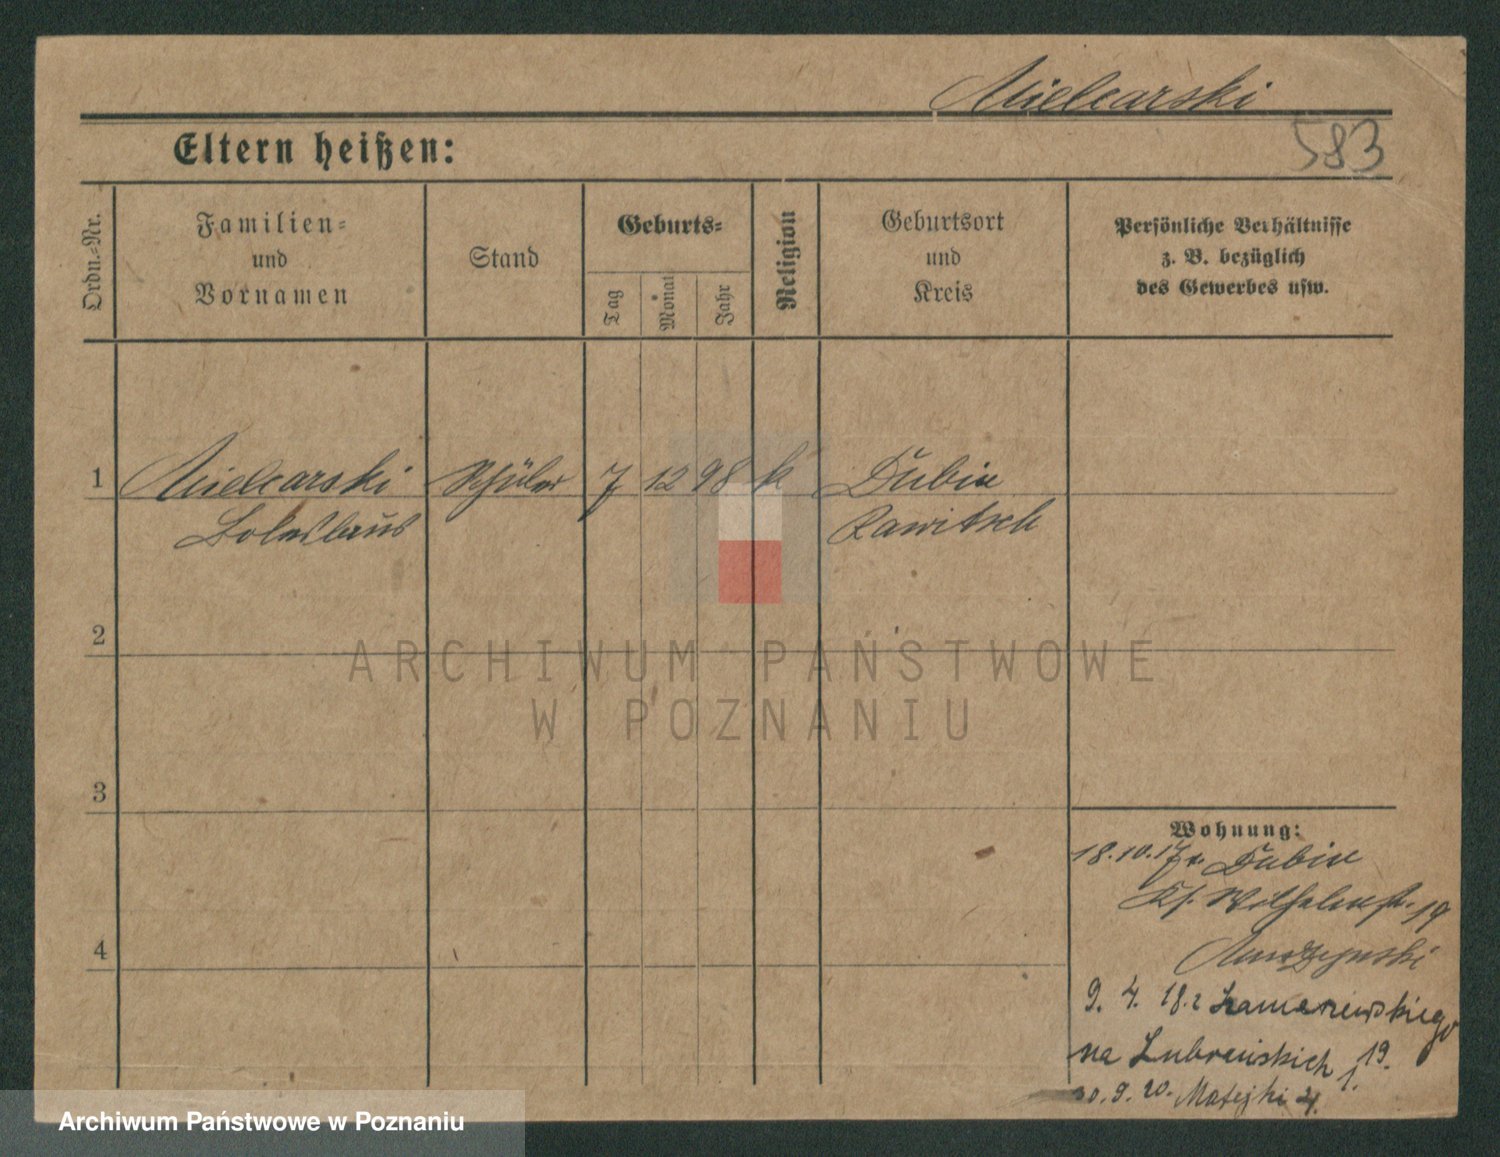 Mielcarski
583
Eltern heißen:
Ordn.-Nr.
Familien-
und
Vornamen
Stand
Geburts-
Tag
Monat
Jahr
Religion
Geburtsort
und
Kreis
Persönliche Verhältnisse
z. B. bezüglich
des Gewerbes usw.
1 Mielcarski Schüler 7 12 98 k Dubin
Boleslaus Rawitsch
2
ARCHIWUM PAŃSTWOWE
W POZNANIU
3
4
Wohnung:
18.10.17 v. Dubin
Wilhelmstr. 19
9. 4. 18. z
na
19.
1.
30. 9. 20. Matejki 4.
Archiwum Państwowe w Poznaniu